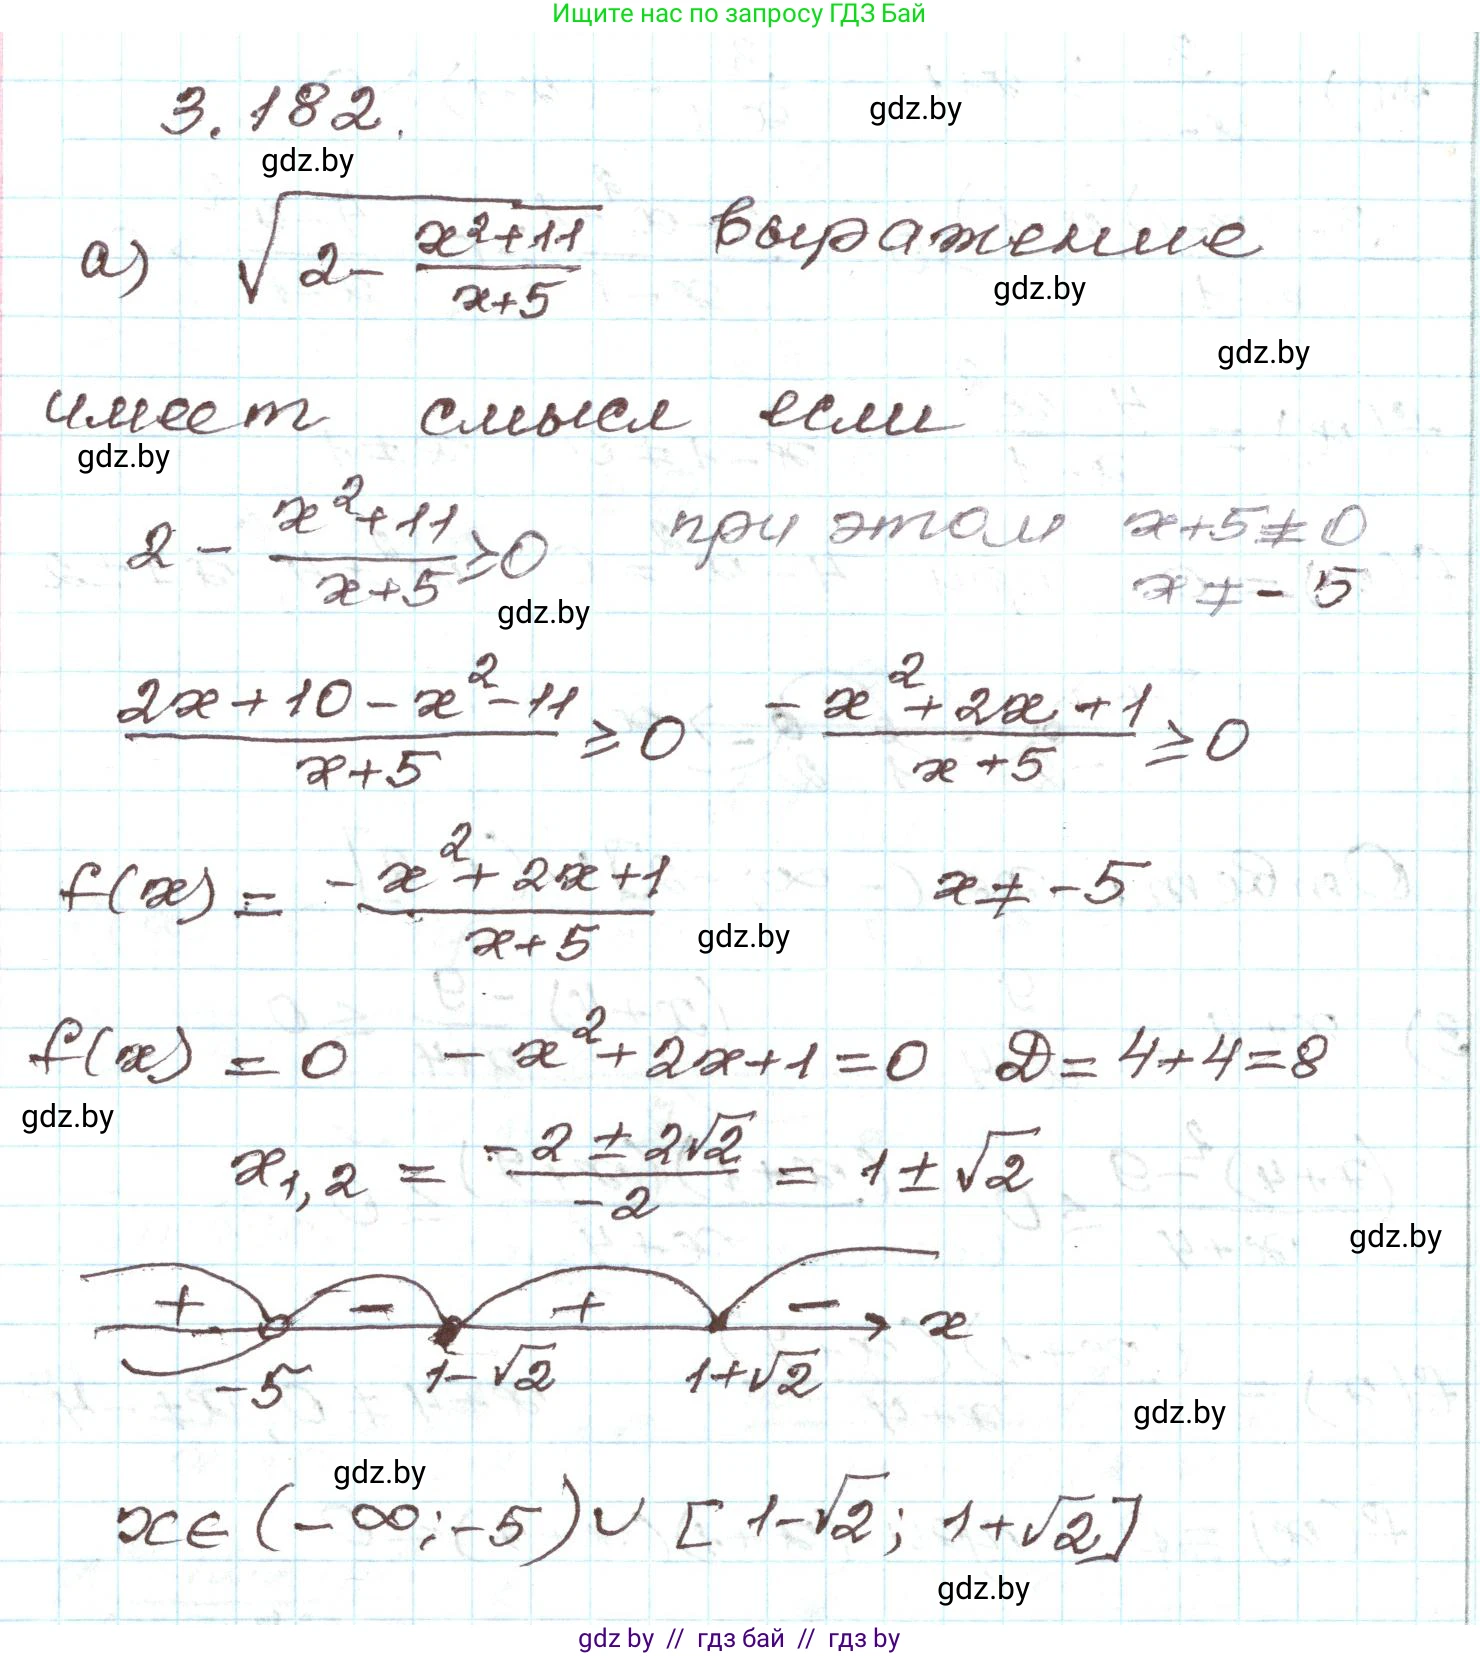 Ищите нас по запросу ГДЗ Бай
3.182.
gdz.by
gdz.by
а) √(2 - (x²+11)/(x+5)) выражение
gdz.by
gdz.by
имеет смысл если
gdz.by
2 - (x²+11)/(x+5) ≥ 0 при этом x+5≠0
x≠-5
gdz.by
(2x+10-x²-11)/(x+5) ≥ 0 (-x²+2x+1)/(x+5) ≥ 0
f(x) = (-x²+2x+1)/(x+5) x≠-5
gdz.by
f(x) = 0 -x²+2x+1=0 D=4+4=8
gdz.by
x₁,₂ = (-2±2√2)/(-2) = 1±√2
gdz.by
+ - + - x
-5 1-√2 1+√2
gdz.by
gdz.by
x∈(-∞;-5)∪[1-√2; 1+√2]
gdz.by
gdz by // гдз бай // гдз by